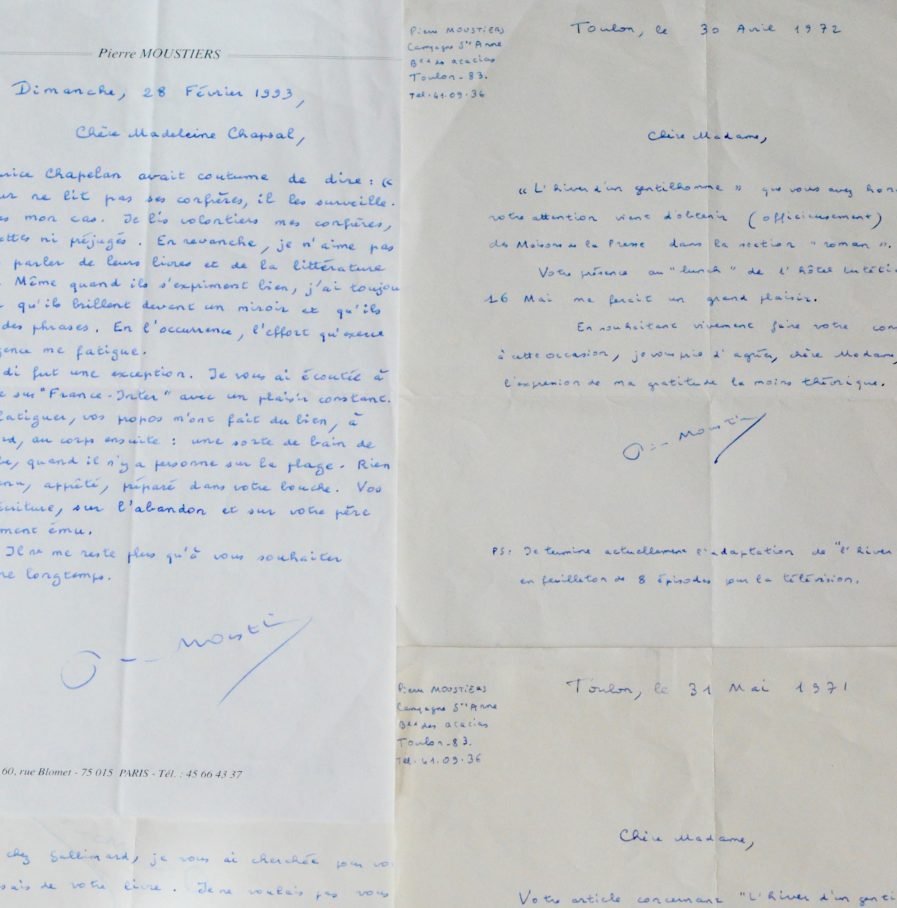 Pierre MOUSTIERS
Dimanche, 28 Février 1993,
Chère Madeleine Chapsal,
rice Chapelan avait coutume de dire : «
ur ne lit pas ses confrères, il les surveille.
as mon cas. Je lis volontiers mes confrères,
ettes ni préjugés. En revanche, je n'aime pas
parler de leurs livres et de la littérature
. Même quand ils s'expriment bien, j'ai toujou
qu'ils brillent devant un miroir et qu'ils
des phrases. En l'occurrence, l'effort qu'exerce
gence me fatigue.
di fut une exception. Je vous ai écoutée à
e sur "France-Inter" avec un plaisir constant.
fatiguer, vos propos m'ont fait du bien, à
rd, au corps ensuite : une sorte de bain de
be, quand il n'y a personne sur la plage. Rien
enu, apprêté, préparé dans votre bouche. Vos
écriture, sur l'abandon et sur votre père
ment ému.
Il ne me reste plus qu'à vous souhaiter
re longtemps.
Moustiers
60, rue Blomet - 75 015 PARIS - Tél. : 45 66 43 37
chez Gallimard, je vous ai cherchée pour vo
sais de votre livre. Je ne voulais pas vous
Pierre MOUSTIERS
Campagne Ste Anne
Bd des acacias
Toulon-83.
Tél. 41.09.36
Toulon, le 30 Avril 1972
Chère Madame,
« L'hiver d'un gentilhomme » que vous avez hon
votre attention vient d'obtenir (officieusement)
des Maisons de la Presse dans la section "roman".
Votre présence au "lunch" de l'hôtel Lutéti
16 Mai me ferait un grand plaisir.
En souhaitant vivement faire votre con
à cette occasion, je vous prie d'agréer, chère Madame,
l'expression de ma gratitude la moins théorique.
Moustiers
PS: Je termine actuellement l'adaptation de "l'hiver
en feuilleton de 8 épisodes pour la télévision.
Pierre MOUSTIERS
Campagne Ste Anne
Bd des acacias
Toulon-83.
Tél. 41.09.36
Toulon, le 31 Mai 1971
Chère Madame,
Votre article concernant "L'hiver d'un genti